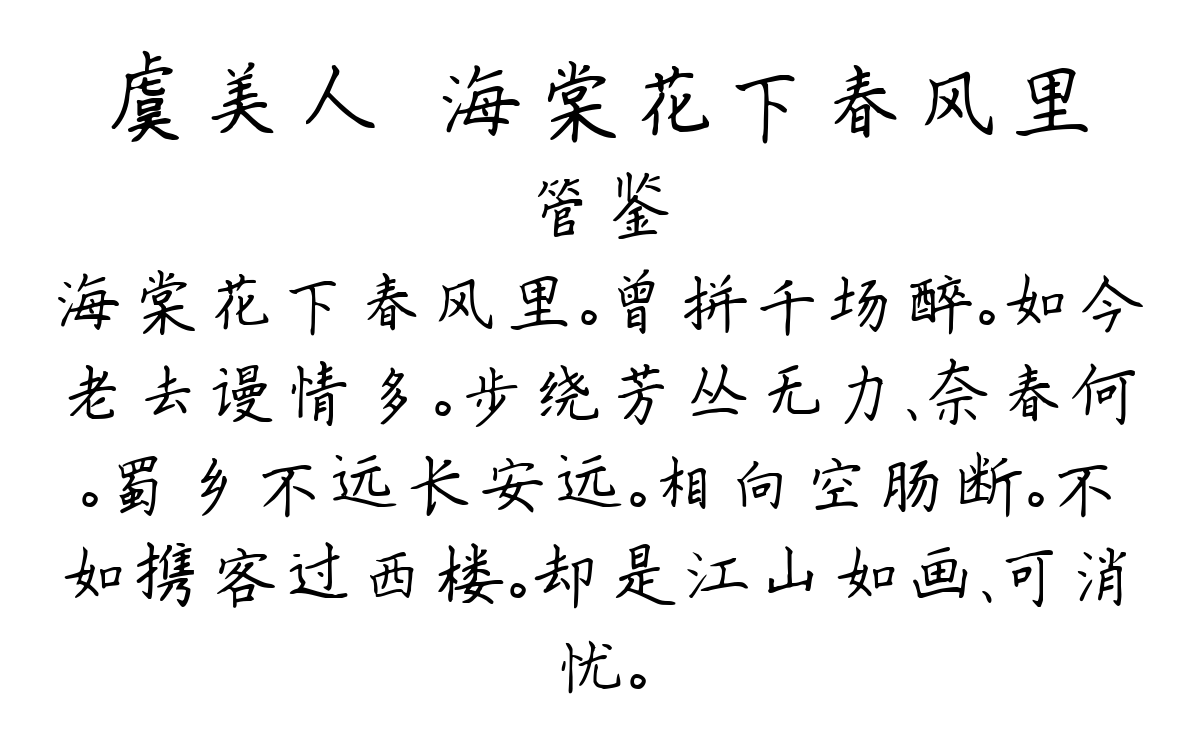 虞美人 海棠花下春风里
管鉴
海棠花下春风里。曾拼千场醉。如今
老去谩情多。步绕芳丛无力、奈春何
。蜀乡不远长安远。相向空肠断。不
如携客过西楼。却是江山如画、可消
忧。